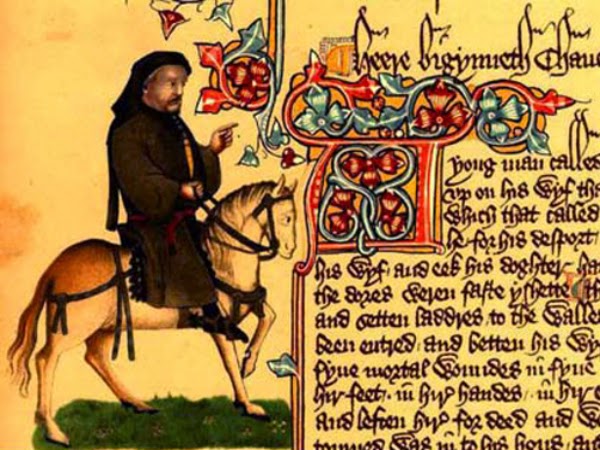 Heere bigynneth Chauc
A yong man called
vp on his wyf tha
Which that called
he for his desport
his wyf and eek his doghter ha
the dores weren faste yshette
and setten laddres to the walle
been entred and betten his wy
fyue mortal woundes in fyue
hir feet in hir handes in hir e
And leften hir for deed and we
tourned was in to his hous and